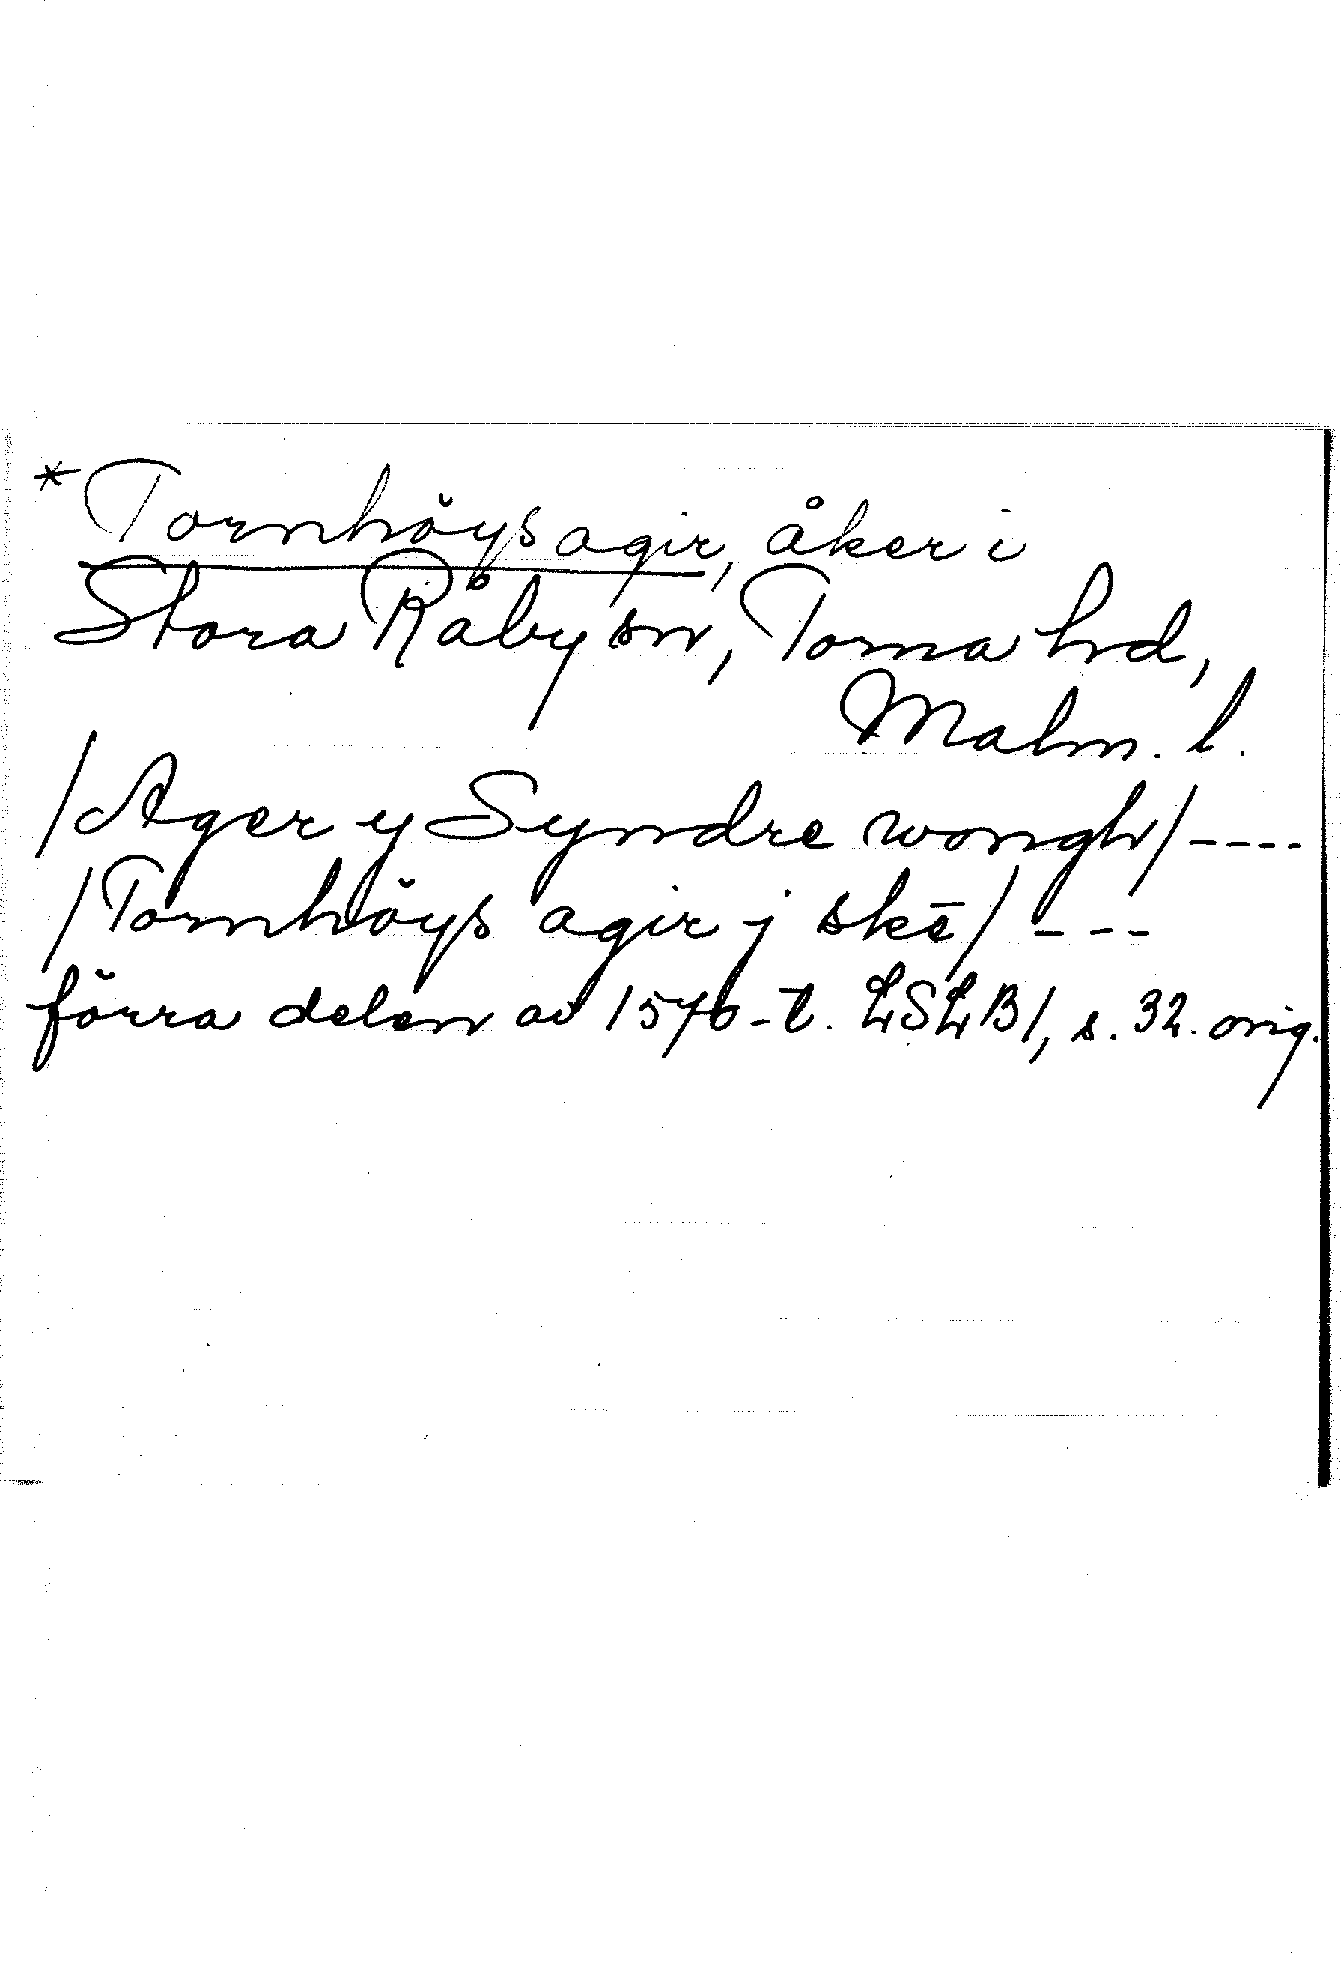 *Tornhöys agir, åker i
Stora Råby sn, Torna hd,
Malm. l.
/Ager y Syndre wongh/----
/Tornhöys agir j skē/---
förra delen av 1570-t. LSLB1, s. 32. orig.